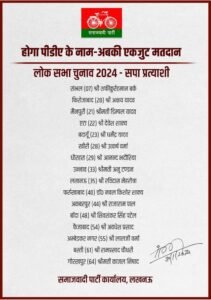 समाजवादी पार्टी
होगा पीडीए के नाम-अबकी एकजुट मतदान
लोक सभा चुनाव 2024 - सपा प्रत्याशी
संभल (07) श्री शफीकुर्रहमान बर्क
फिरोजाबाद (20) श्री अक्षय यादव
मैनपुरी (21) श्रीमती डिम्पल यादव
एटा (22) श्री देवेश शाक्य
बदायूँ (23) श्री धर्मेंद्र यादव
खीरी (28) श्री उत्कर्ष वर्मा
धौरहरा (29) श्री आनन्द भदौरिया
उन्नाव (33) श्रीमती अनु टण्डन
लखनऊ (35) श्री रविदास मेहरोत्रा
फर्रुखाबाद (40) डॉ0 नवल किशोर शाक्य
अकबरपुर (44) श्री राजाराम पाल
बांदा (48) श्री शिवशंकर सिंह पटेल
फैजाबाद (54) श्री अवधेश प्रसाद
अम्बेडकर नगर (55) श्री लालजी वर्मा
बस्ती (61) श्री रामप्रसाद चौधरी
गोरखपुर (64) श्रीमती काजल निषाद
समाजवादी पार्टी कार्यालय, लखनऊ